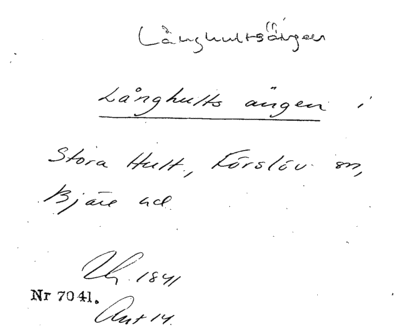 Långhultsängen
Långhults ängen i
Stora Hult, Förslöv sn,
Bjäre hd
1841
Nr 7041.
Akt 14.